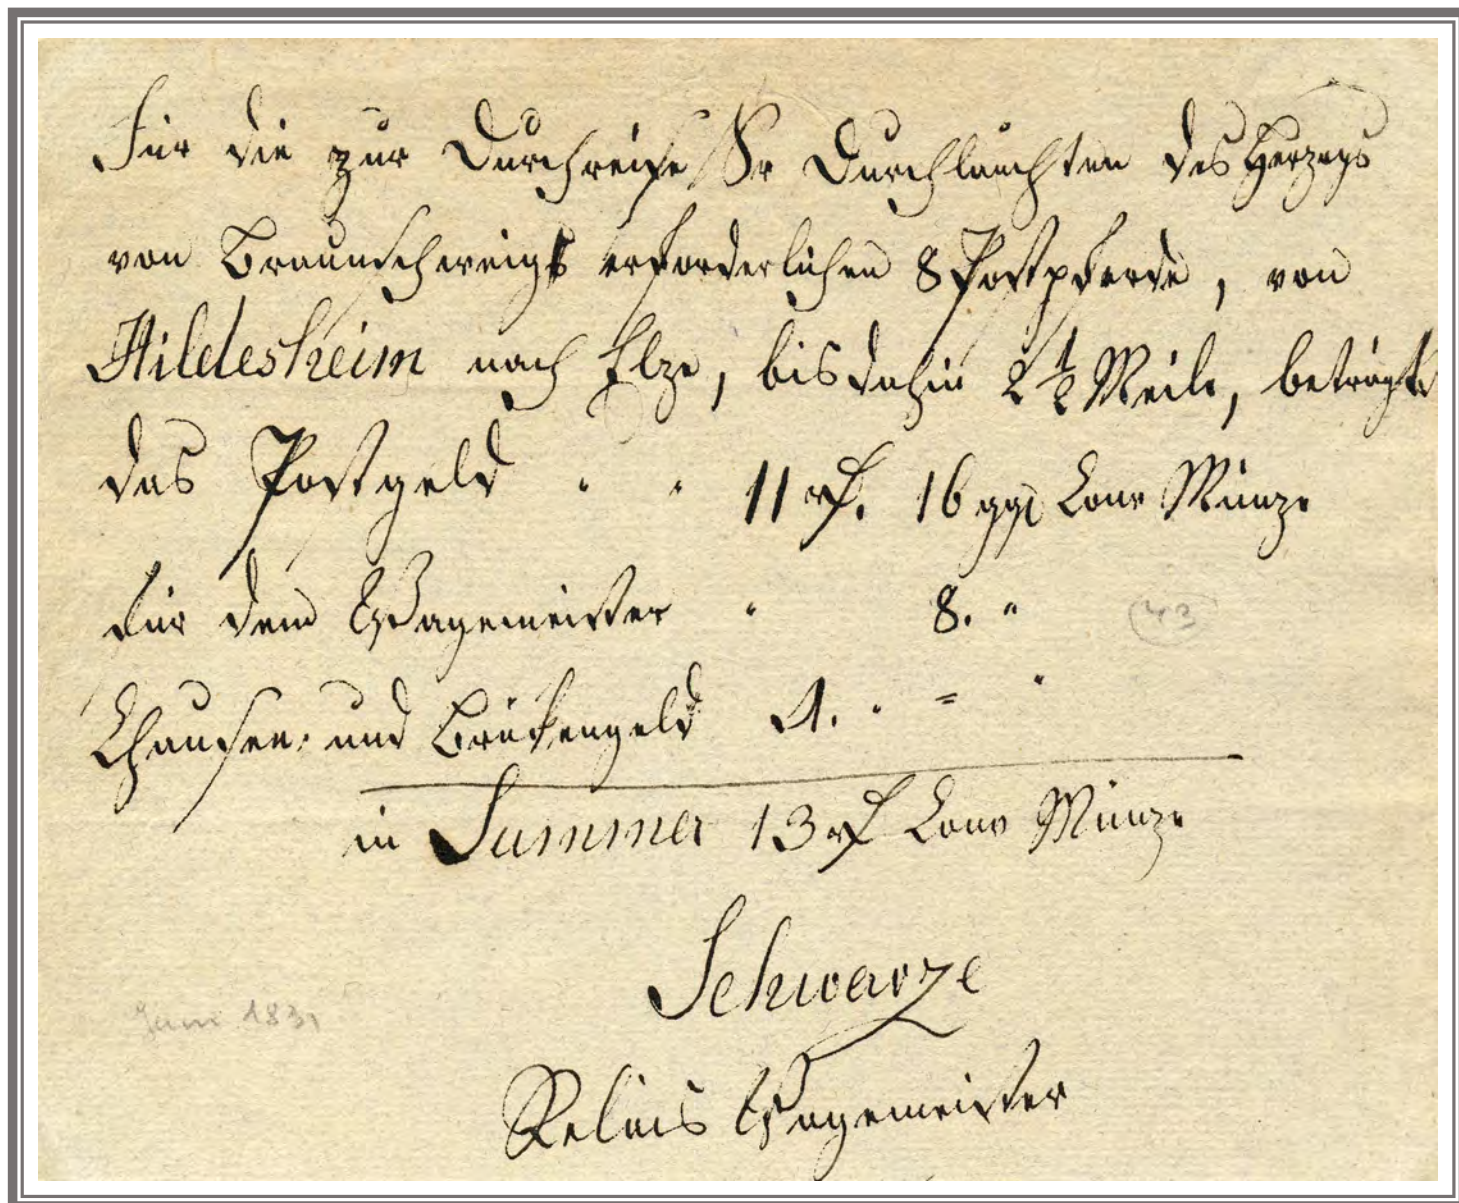 Für die zur Durchreise Sr Durchlauchten des Herzogs
von Braunschweigs erforderlichen 8 Postpferde, von
Hildesheim nach Elze, bis dahin 2 1/2 Meile, beträgt
das Postgeld " " 11 rf. 16 ggl Conv Münze
für dem Wagemeister " 8. "
Chaussee- und Brükengeld 1. " = "
in Summa 13 rf Conv Münze
Schwarze
Relais Wagemeister
43
Juni 1831